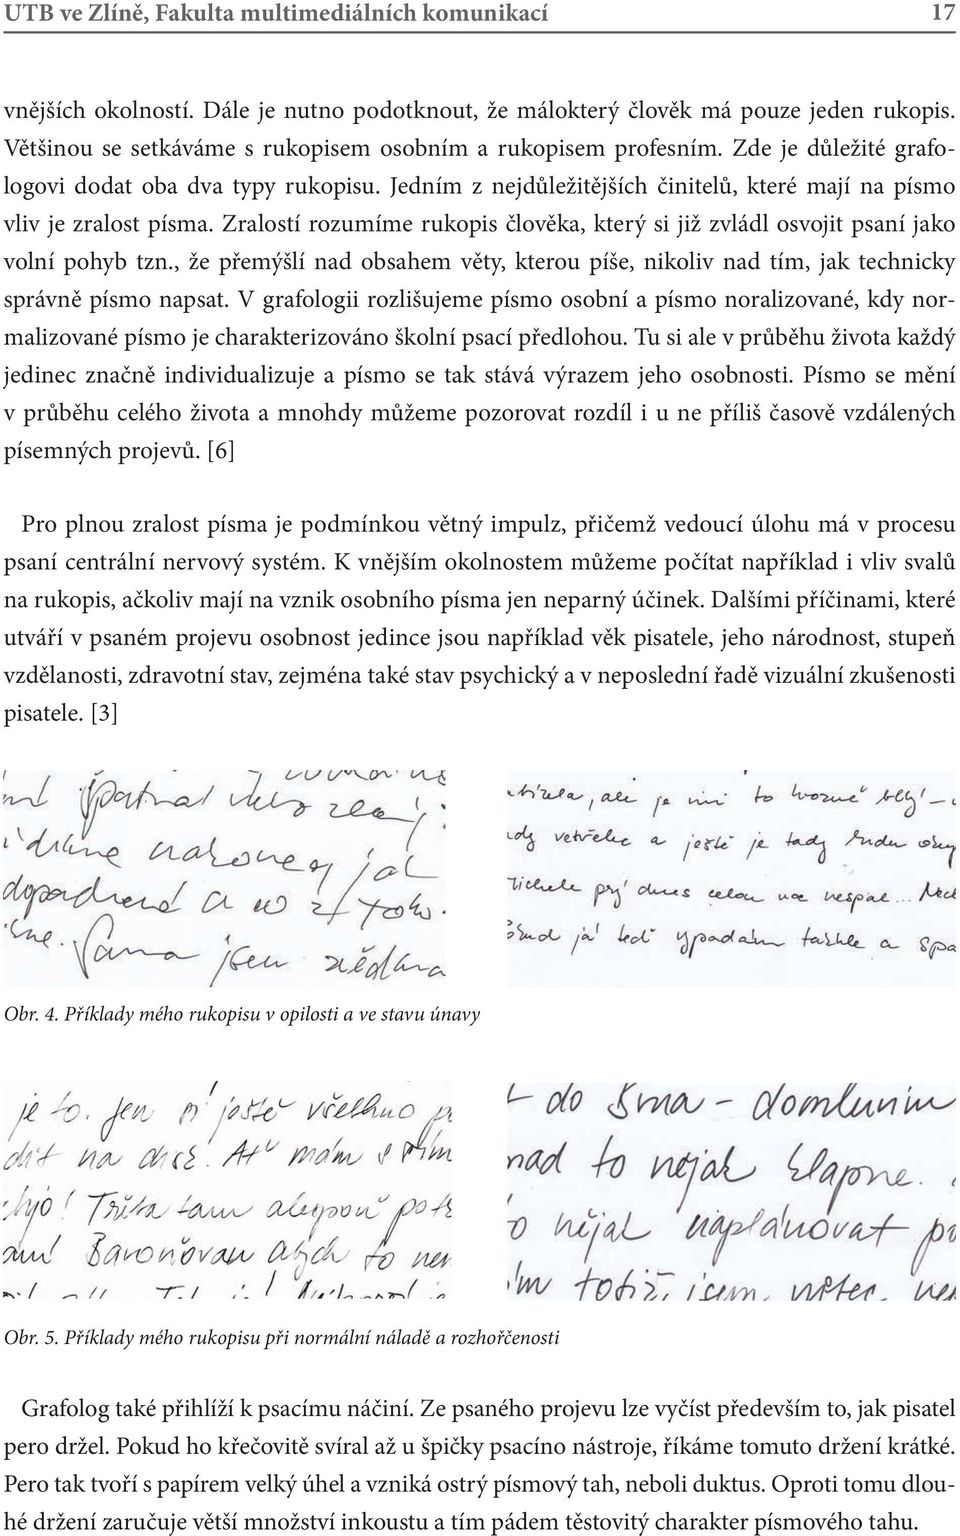 UTB ve Zlíně, Fakulta multimediálních komunikací 17
vnějších okolností. Dále je nutno podotknout, že málokterý člověk má pouze jeden rukopis.
Většinou se setkáváme s rukopisem osobním a rukopisem profesním. Zde je důležité grafo-
logovi dodat oba dva typy rukopisu. Jedním z nejdůležitějších činitelů, které mají na písmo
vliv je zralost písma. Zralostí rozumíme rukopis člověka, který si již zvládl osvojit psaní jako
volní pohyb tzn., že přemýšlí nad obsahem věty, kterou píše, nikoliv nad tím, jak technicky
správně písmo napsat. V grafologii rozlišujeme písmo osobní a písmo noralizované, kdy nor-
malizované písmo je charakterizováno školní psací předlohou. Tu si ale v průběhu života každý
jedinec značně individualizuje a písmo se tak stává výrazem jeho osobnosti. Písmo se mění
v průběhu celého života a mnohdy můžeme pozorovat rozdíl i u ne příliš časově vzdálených
písemných projevů. [6]
Pro plnou zralost písma je podmínkou větný impulz, přičemž vedoucí úlohu má v procesu
psaní centrální nervový systém. K vnějším okolnostem můžeme počítat například i vliv svalů
na rukopis, ačkoliv mají na vznik osobního písma jen neparný účinek. Dalšími příčinami, které
utváří v psaném projevu osobnost jedince jsou například věk pisatele, jeho národnost, stupeň
vzdělanosti, zdravotní stav, zejména také stav psychický a v neposlední řadě vizuální zkušenosti
pisatele. [3]
špatná
nakonec jak
a co z toho.
Sama jsem zjedna
ale je mi to hrozně blbý –
vetřelec a ještě je tady
prý dnes celou noc nespal...
já teď vypadám takhle a
Obr. 4. Příklady mého rukopisu v opilosti a ve stavu únavy
je to. Jen si ještě všechno
na disk. Ať mám s
Třeba tam alespoň
abych to
do Brna – domluvím
nad to nějak klapne.
nějak naplánovat
totiž jsem
Obr. 5. Příklady mého rukopisu při normální náladě a rozhořčenosti
Grafolog také přihlíží k psacímu náčiní. Ze psaného projevu lze vyčíst především to, jak pisatel
pero držel. Pokud ho křečovitě svíral až u špičky psacíno nástroje, říkáme tomuto držení krátké.
Pero tak tvoří s papírem velký úhel a vzniká ostrý písmový tah, neboli duktus. Oproti tomu dlou-
hé držení zaručuje větší množství inkoustu a tím pádem těstovitý charakter písmového tahu.